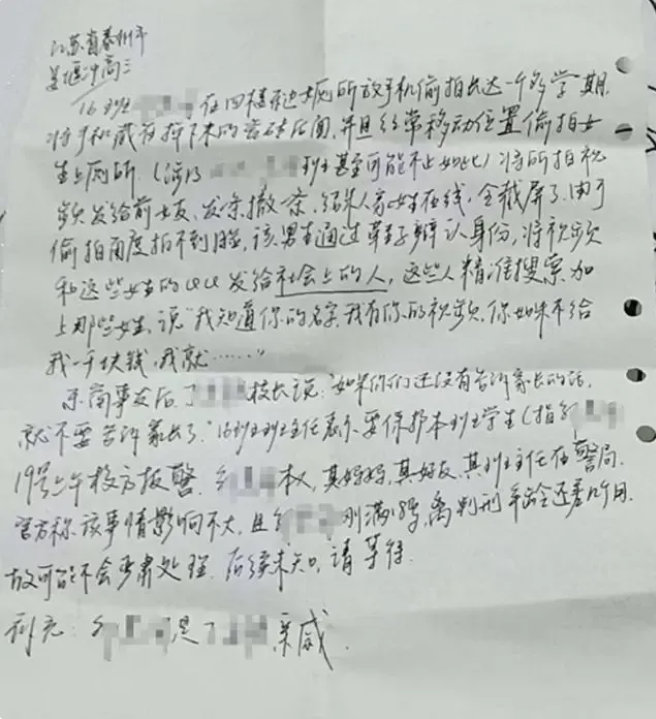 江苏省泰州市
姜堰中高三
16班 在四楼 女厕所放手机偷拍长达一个多学期.
将手机藏在掉下来的瓷砖后面,并且经常移动位置偷拍女
生上厕所.(涉及 班甚至可能不止如此)将所拍视
频发给前女友,发条撤一条,结果人家女生在线,全截屏了.由于
偷拍角度拍不到脸,该男生通过鞋子辩认身份,将视频
和这些女生的QQ发给社会上的人,这些人精准搜索加
上那些女生,说"我知道你的名字,我有你的视频,你如果不给
我一千块钱,我就……"
东窗事发后,丁 校长说:"如果你们还没有告诉家长的话,
就不要告诉家长了."16班班主任表示要保护本班学生(指
19号上午校方报警. 本人,其妈妈,其好友,其班主任在警局.
官方称该事情影响不大,且 刚满 ,离判刑年龄还差几个月.
故可能不会严肃处理.后续未知,请等待.
补充: 是丁 亲戚.